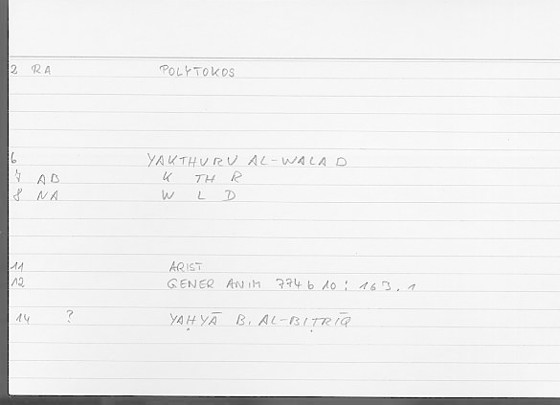 2 RA POLYTOKOS
6 YAKTHURU AL-WALAD
7 AB K TH R
8 NA W L D
11 ARIST
12 GENER ANIM 774 b 10 : 163.1
14 ? YAḤYĀ B. AL-BIṬRĪQ